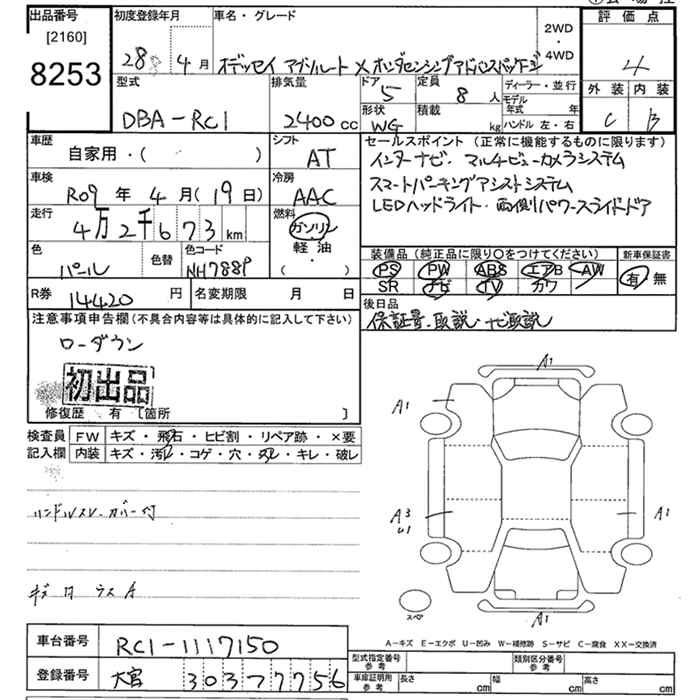 出品番号 初度登録年月 車名・グレード 2WD・4WD 評価点
[2160]
8253
28年 4月 オデッセイ アブソルート X ホンダセンシングアドバンスパッケージ 4
型式 排気量 ドア 5 定員 8人 ディーラー・並行 外装 内装
DBA-RC1 2400cc 形状 WG 積載 kg モデル年式 年 C B
ハンドル 左・右
車歴 シフト セールスポイント (正常に機能するものに限ります)
自家用・( ) AT インターナビ・マルチビューカメラシステム
車検 冷房 スマートパーキングアシストシステム
R09年 4月(19日) AAC LEDヘッドライト・両側パワースライドドア
走行 燃料
4万2千673km ガソリン 装備品(純正品に限り○をつけてください) 新車保証書
色 色替 色コード 軽油・( ) PS PW ABS エアB AW 有 無
パール NH788P SR ナビ TV カワ
R券 14420円 名変期限 月 日 後日品
保証書・取説・ナビ取説
注意事項申告欄(不具合内容等は具体的に記入して下さい)
ローダウン
初出品
修復歴 有 [箇所 ]
検査員 FW キズ・飛石・ヒビ割・リペア跡・×要
記入欄 内装 キズ・汚レ・コゲ・穴・スレ・キレ・破レ
ハンドルスレ・カバー付
A1
A1
A3
U1
A1
A1
スペア
A-キズ E-エクボ U-凹み W-補修跡 S-サビ C-腐食 XX-交換済
車台番号 RC1-1117150 型式指定番号 参考 類別区分番号 参考
登録番号 大宮 303 7756 車庫証明用 参考 長さ cm 幅 cm 高さ cm